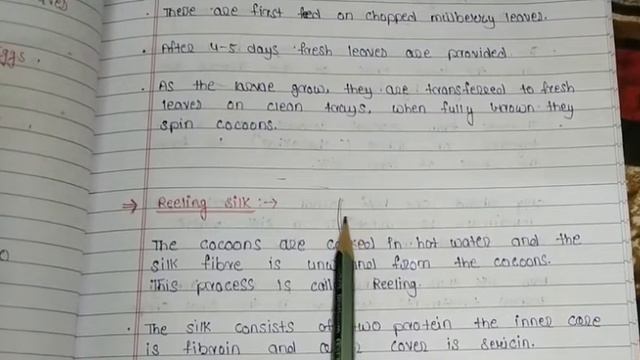 These are first fed on chopped mulberry leaves.
ggs.
After 4-5 days fresh leaves are provided
As the larvae grow, they are transferred to fresh
leaves on clean trays, when fully grown they
spin cocoons.
⇒ Reeling silk :→
The cocoons are in hot water and the
silk fibre is from the cocoons.
This process is Reeling.
The silk consists of two protein the inner core
is fibroin and cover is sericin.